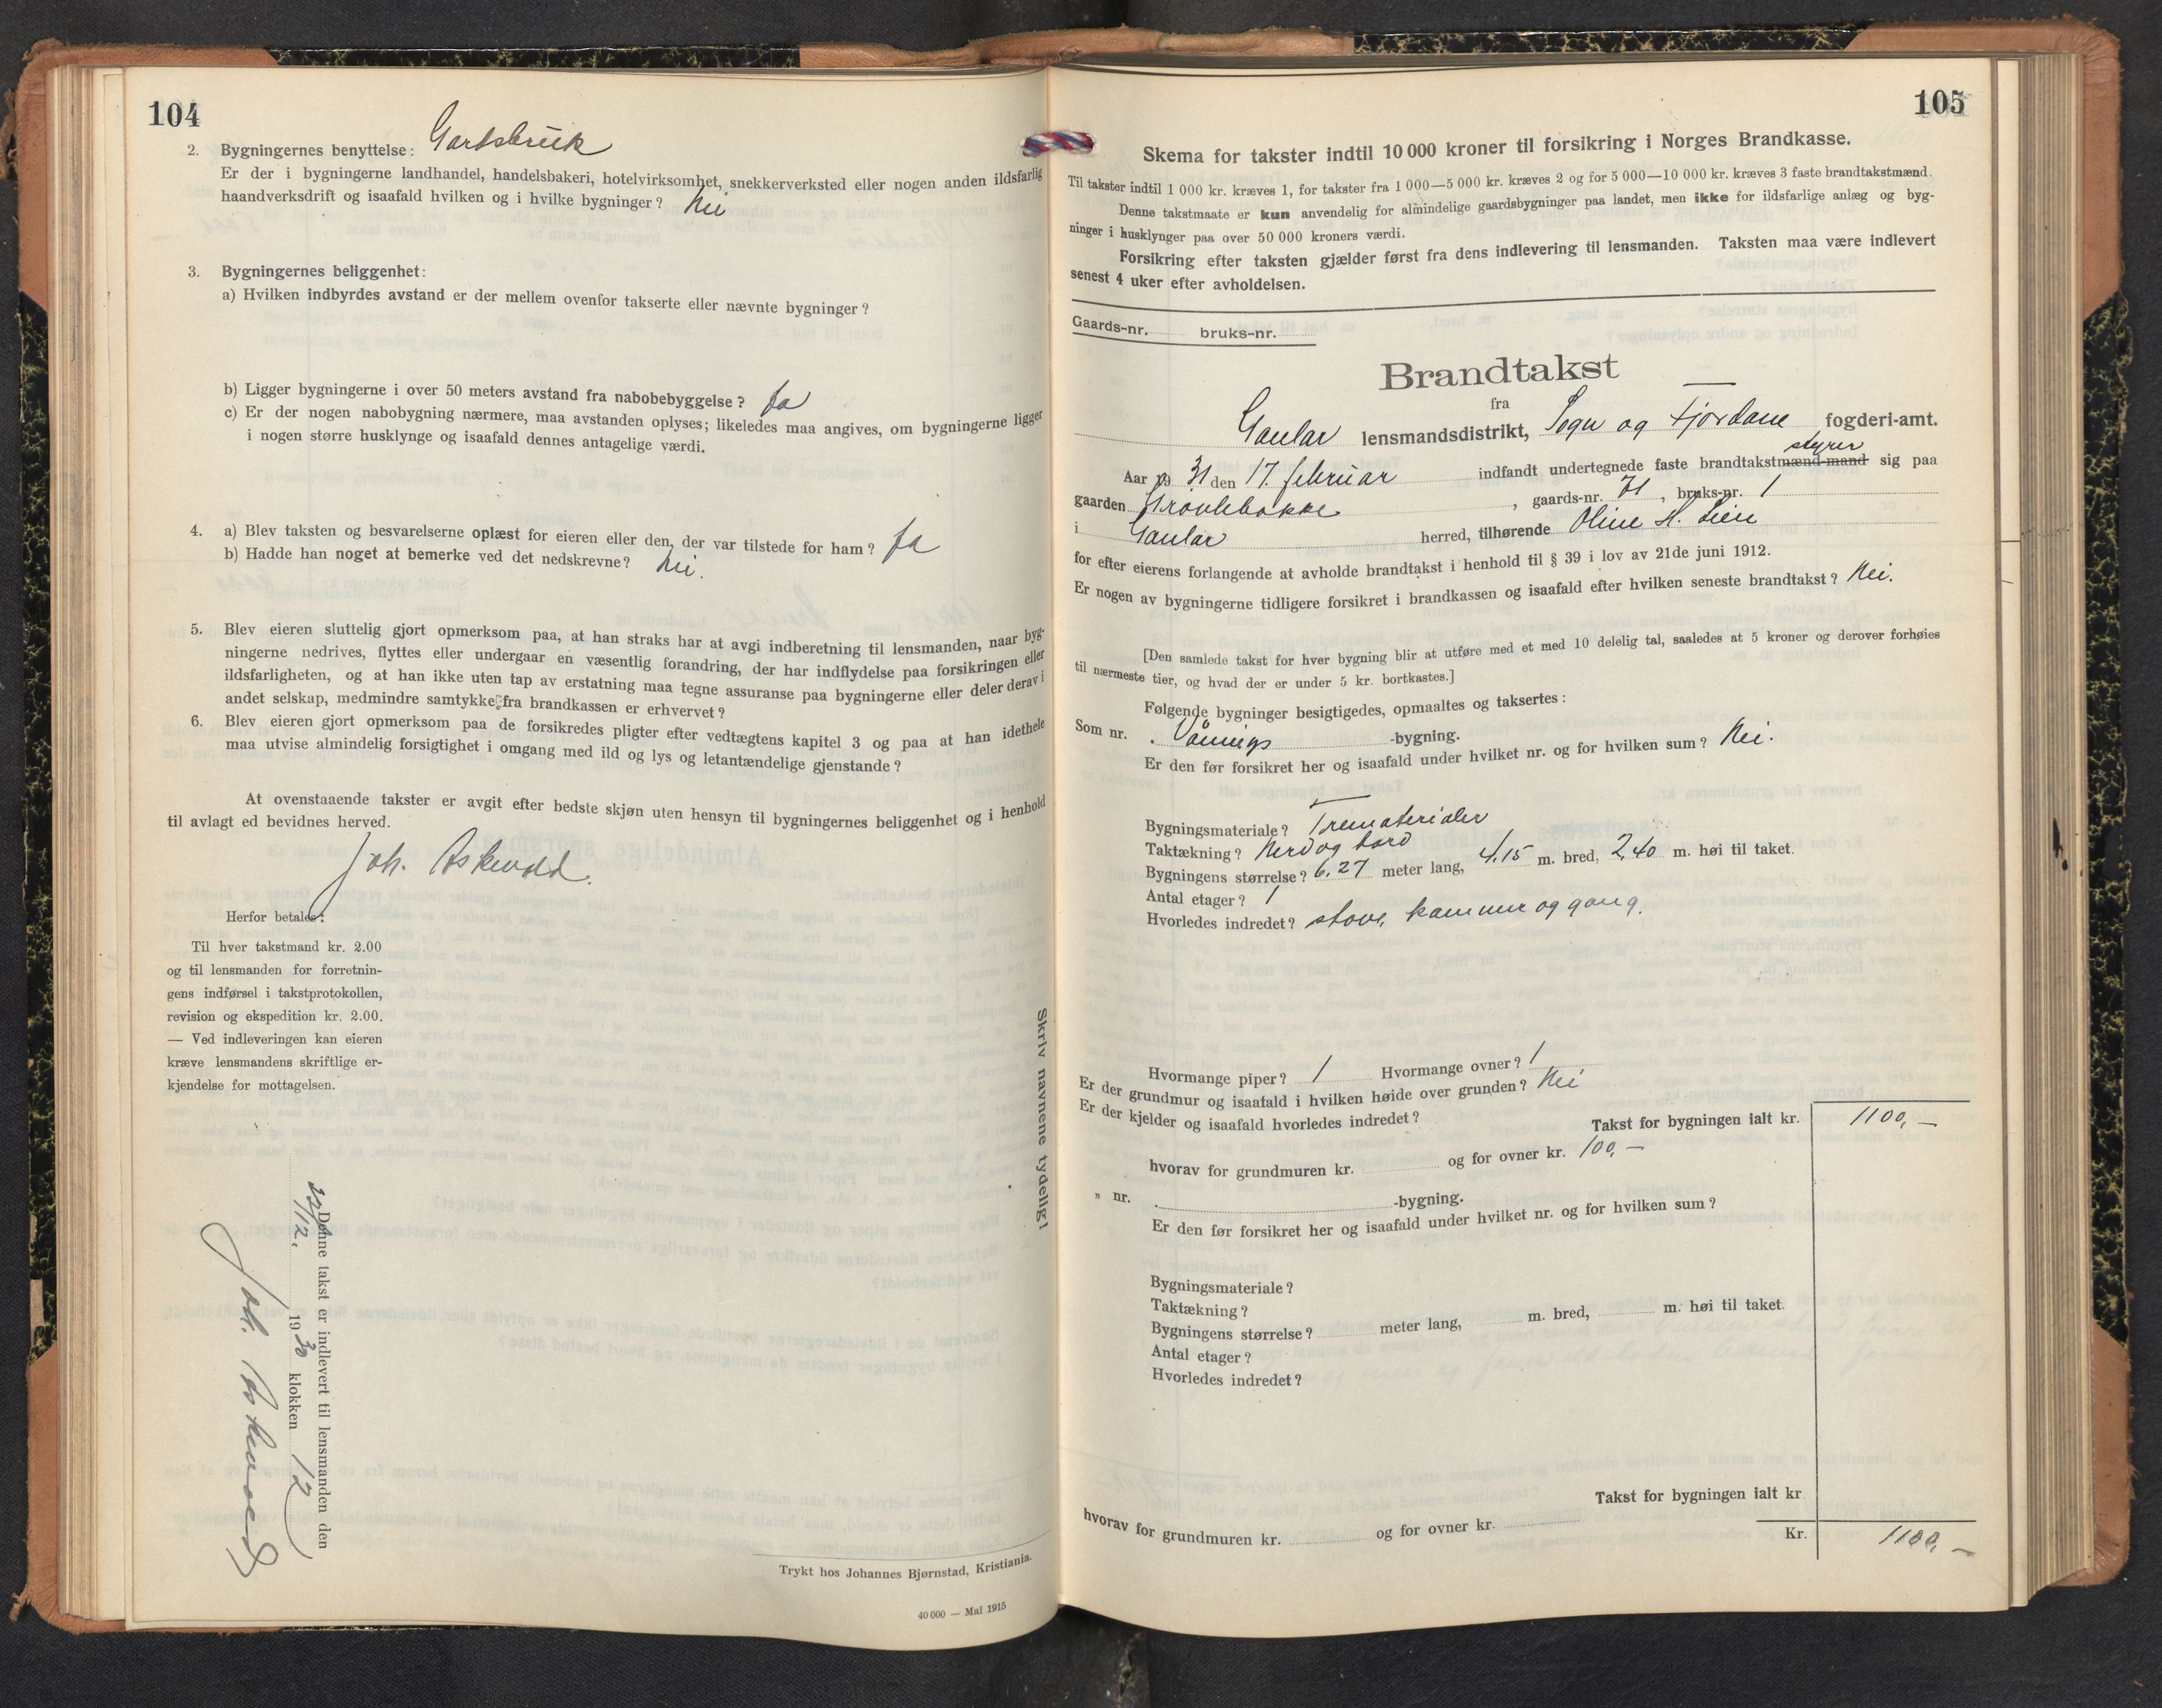 104
2. Bygningernes benyttelse: Gardsbruk
Er der i bygningerne landhandel, handelsbakeri, hotelvirksomhet, snekkerverksted eller nogen anden ildsfarlig
haandverksdrift og isaafald hvilken og i hvilke bygninger? Nei
3. Bygningernes beliggenhet:
a) Hvilken indbyrdes avstand er der mellem ovenfor takserte eller nævnte bygninger?
b) Ligger bygningerne i over 50 meters avstand fra nabobebyggelse? Ja
c) Er der nogen nabobygning nærmere, maa avstanden oplyses; likeledes maa angives, om bygningerne ligger
i nogen større husklynge og isaafald dennes antagelige værdi.
4. a) Blev taksten og besvarelserne oplæst for eieren eller den, der var tilstede for ham? Ja
b) Hadde han noget at bemerke ved det nedskrevne? Nei.
5. Blev eieren sluttelig gjort opmerksom paa, at han straks har at avgi indberetning til lensmanden, naar byg-
ningerne nedrives, flyttes eller undergaar en væsentlig forandring, der har indflydelse paa forsikringen eller
ildsfarligheten, og at han ikke uten tap av erstatning maa tegne assuranse paa bygningerne eller deler derav i
andet selskap, medmindre samtykke fra brandkassen er erhvervet?
6. Blev eieren gjort opmerksom paa de forsikredes pligter efter vedtægtens kapitel 3 og paa at han idethele
maa utvise almindelig forsigtighet i omgang med ild og lys og letantændelige gjenstande?
At ovenstaaende takster er avgit efter bedste skjøn uten hensyn til bygningernes beliggenhet og i henhold
til avlagt ed bevidnes herved.
Joh. Askvold.
Herfor betales:
Til hver takstmand kr. 2.00
og til lensmanden for forretnin-
gens indførsel i takstprotokollen,
revision og ekspedition kr. 2.00.
— Ved indleveringen kan eieren
kræve lensmandens skriftlige er-
kjendelse for mottagelsen.
Denne takst er indlevert til lensmanden den
23/12. 1930 klokken 12
Joh. Askvold
Skriv navnene tydelig!
Trykt hos Johannes Bjørnstad, Kristiania.
40 000 — Mai 1915
105
Skema for takster indtil 10 000 kroner til forsikring i Norges Brandkasse.
Til takster indtil 1 000 kr. kræves 1, for takster fra 1 000—5 000 kr. kræves 2 og for 5 000—10 000 kr. kræves 3 faste brandtakstmænd.
Denne takstmaate er kun anvendelig for almindelige gaardsbygninger paa landet, men ikke for ildsfarlige anlæg og byg-
ninger i husklynger paa over 50 000 kroners værdi.
Forsikring efter taksten gjælder først fra dens indlevering til lensmanden. Taksten maa være indlevert
senest 4 uker efter avholdelsen.
Gaards-nr. bruks-nr.
Brandtakst
fra
Gaular lensmandsdistrikt, Sogn og Fjordane fogderi-amt.
styrer
Aar 19 31 den 17. februar indfandt undertegnede faste brandtakstmænd-mand sig paa
gaarden , gaards-nr. 71, bruks-nr. 1
i Gaular herred, tilhørende Oline H. Lien
for efter eierens forlangende at avholde brandtakst i henhold til § 39 i lov av 21de juni 1912.
Er nogen av bygningerne tidligere forsikret i brandkassen og isaafald efter hvilken seneste brandtakst? Nei.
[Den samlede takst for hver bygning blir at utføre med et med 10 delelig tal, saaledes at 5 kroner og derover forhøies
til nærmeste tier, og hvad der er under 5 kr. bortkastes.]
Følgende bygninger besigtigedes, opmaaltes og taksertes:
Som nr. . Vånings -bygning.
Er den før forsikret her og isaafald under hvilket nr. og for hvilken sum? Nei.
Bygningsmateriale? Trematerialer
Taktækning? Never og bord
Bygningens størrelse? 6.27 meter lang, 4.15 m. bred, 2.40 m. høi til taket.
Antal etager? 1
Hvorledes indredet? stove, kammer og gang.
Hvormange piper? 1 Hvormange ovner? 1
Er der grundmur og isaafald i hvilken høide over grunden? Nei
Er der kjelder og isaafald hvorledes indredet?
Takst for bygningen ialt kr. 1100,—
hvorav for grundmuren kr. og for ovner kr. 100,—
„ nr. . -bygning.
Er den før forsikret her og isaafald under hvilket nr. og for hvilken sum?
Bygningsmateriale?
Taktækning?
Bygningens størrelse? meter lang, m. bred, m. høi til taket.
Antal etager?
Hvorledes indredet?
Takst for bygningen ialt kr
hvorav for grundmuren kr. og for ovner kr.
Kr. 1100,—